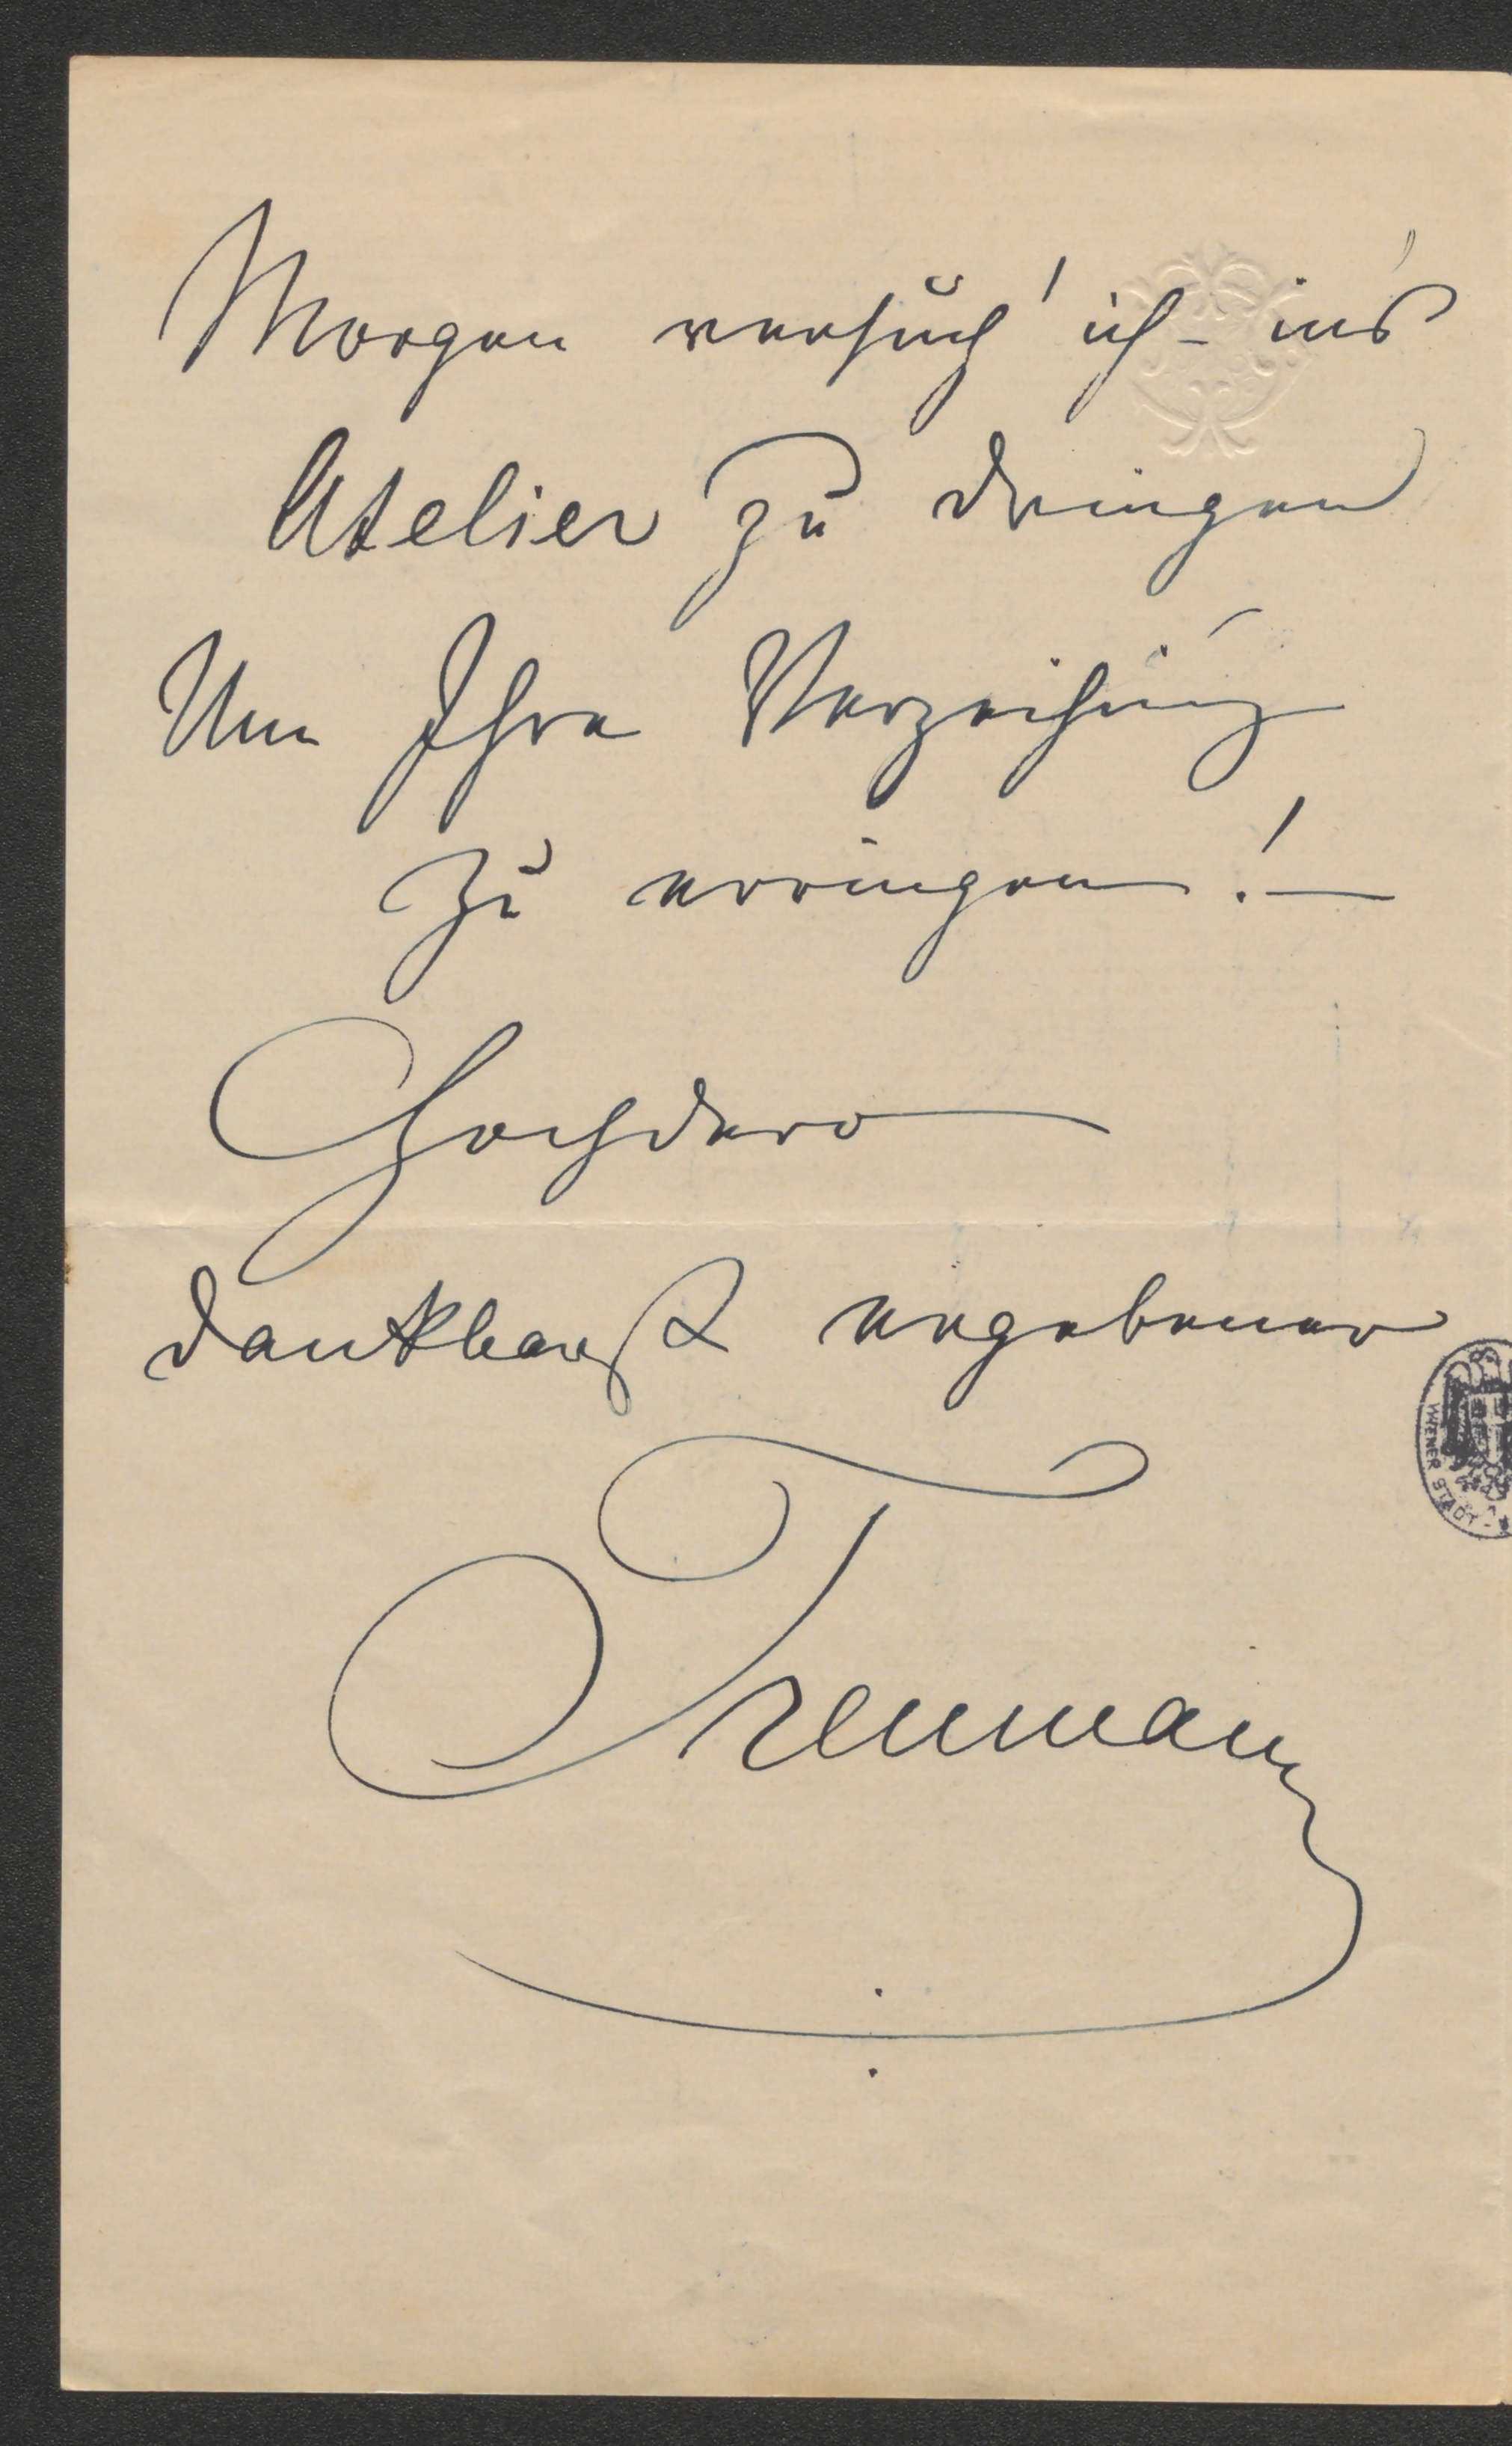 Morgen versuch' ich – in's
Atelier zu dringen
Um Ihre Verzeihung
zu erringen! –
Hochdero
dankbarst ergebener
WIENER STADT-